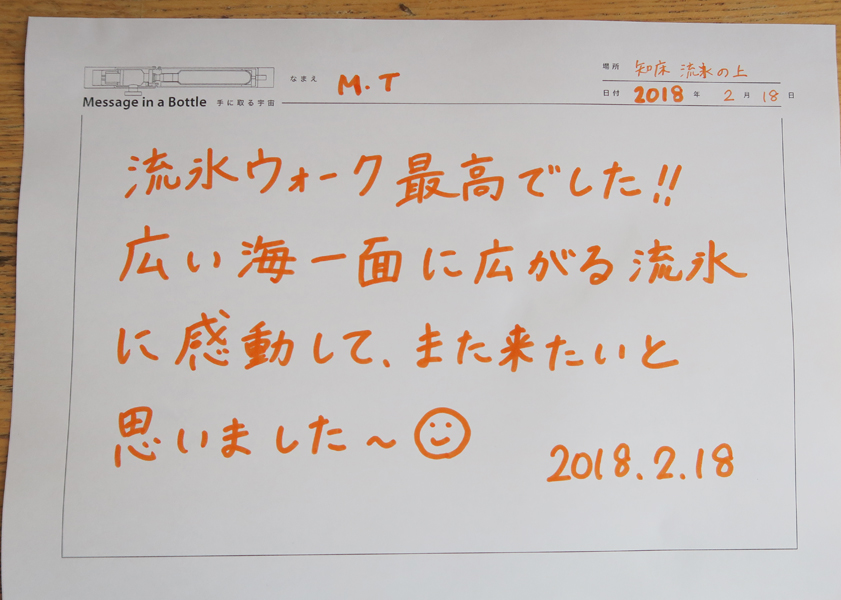 なまえ M.T
場所 知床 流氷の上
Message in a Bottle 手に取る宇宙
日付 2018 年 2 月 18 日
流氷ウォーク最高でした!!
広い海一面に広がる流氷
に感動して、また来たいと
思いました~
2018.2.18